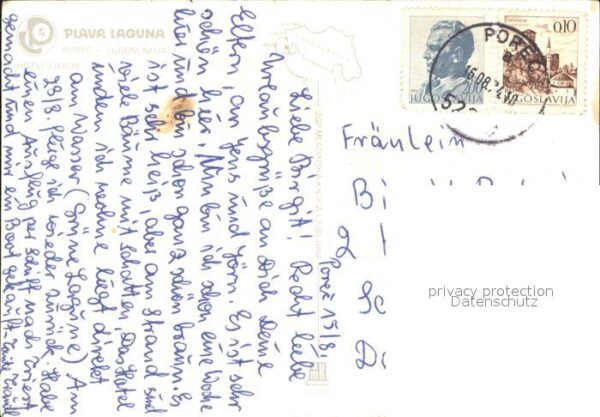 PLAVA LAGUNA
POREČ - JUGOSLAVIJA
HOTEL LOTOS
Poreč 15/8.
Liebe Birgit! Recht liebe
Urlaubsgrüße an Dich Deine
Eltern, an Jens und Jörn. Es ist sehr
schön hier. Nun bin ich schon eine Woche
hier und bin schon ganz schön braun. Es
ist sehr heiß, aber am Strand sind
viele Bäume mit Schatten. Das Hotel
indem ich wohne liegt direkt
am Wasser (Grüne Lagune) Am
28/8. fliege ich wieder zurück. Habe
einen Ausflug per Schiff nach Triest
gemacht und mir ein Boot gekauft
Tante
200
JUGOSLAVIJA
0.10
JUGOSLAVIJA
POREČ
16.08.74.10
52
Fräulein
Bi
2
Sc
D
privacy protection
Datenschutz